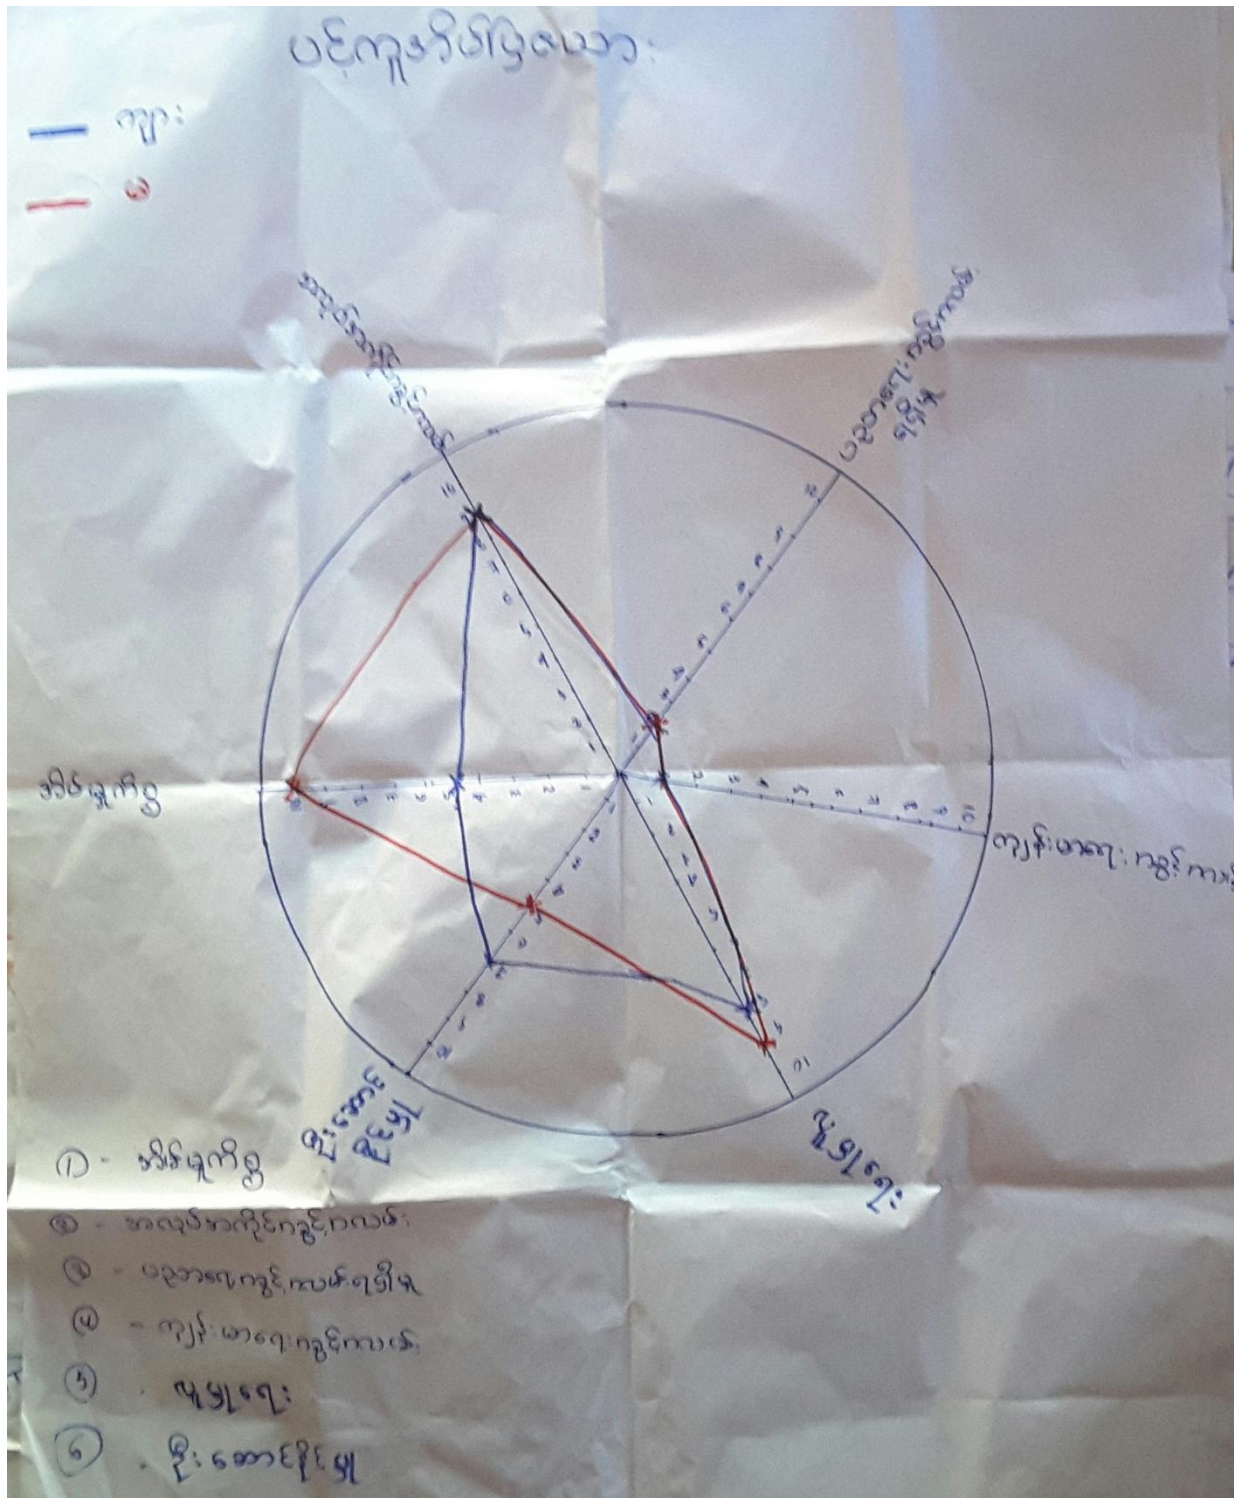 ပင့်ကူအိမ်ပြဇယား
ကျား
မ
အလုပ်အကိုင်အခွင့်အလမ်း
ပညာရေးအခွင့်အလမ်းရရှိမှု
အိမ်မှုကိစ္စ
ကျန်းမာရေးအခွင့်အလမ်း
ဦးဆောင်နိုင်မှု
လူမှုရေး
① - အိမ်မှုကိစ္စ
② - အလုပ်အကိုင်အခွင့်အလမ်း
③ - ပညာရေးအခွင့်အလမ်းရရှိမှု
④ - ကျန်းမာရေးအခွင့်အလမ်း
⑤ - လူမှုရေး
⑥ - ဦးဆောင်နိုင်မှု